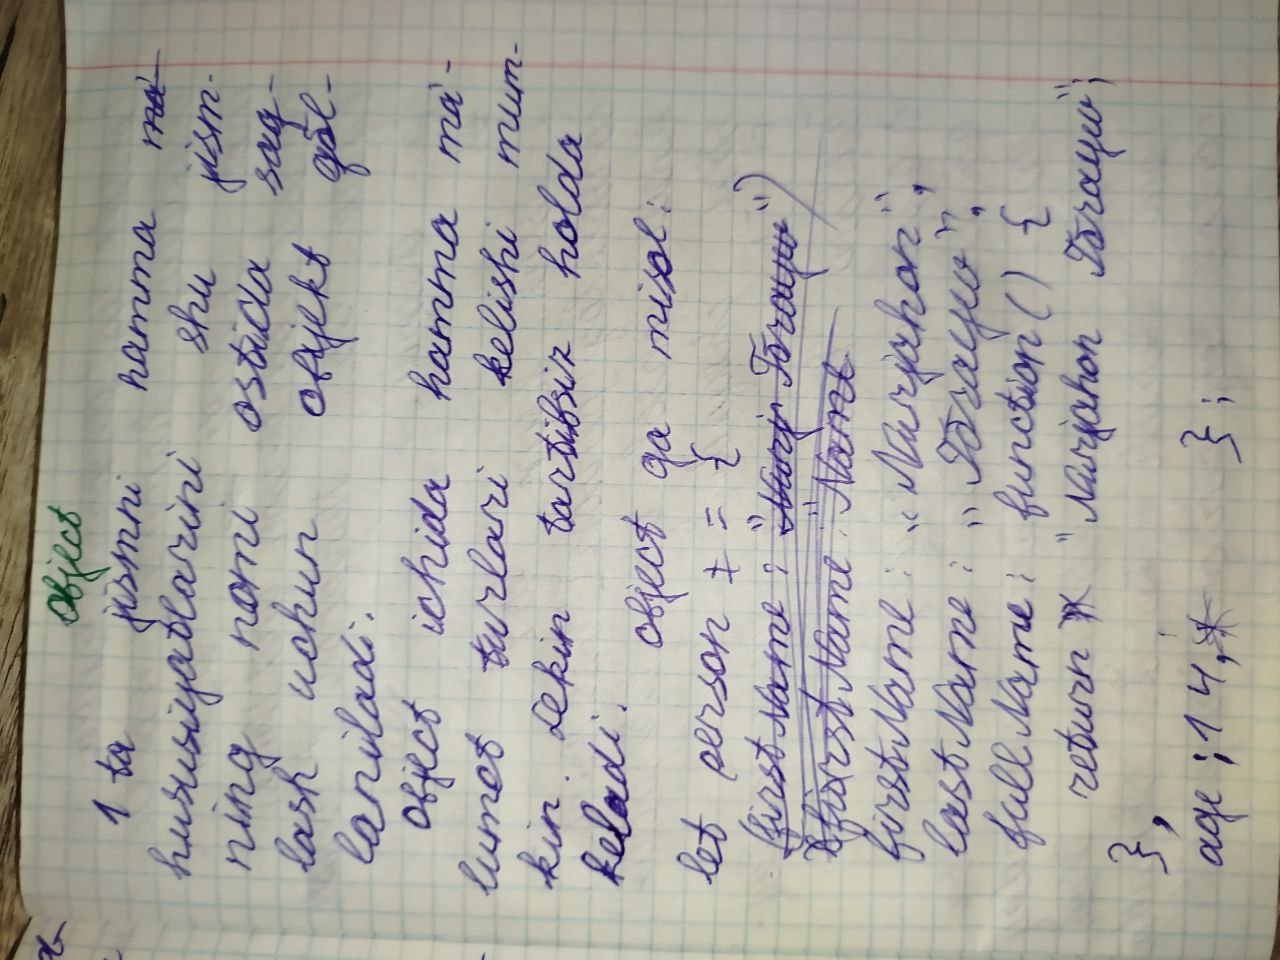 object
1 ta jismni hamma ma
hususiyatlarini shu jism-
ning nomi ostida saq-
lash uchun objekt qo'l-
laniladi.
object ichida hamma ma'-
lumot turlari kelishi mum-
kin. Lekin tartibsiz holda
keladi.
object ga misol:
let person = {
firstName : "Nurj Torayev"
firstName : "Name
firstName : "Nurjahon",
lastName : "Torayev",
fullName : function() {
return "Nurjahon Torayev";
},
age : 14, };